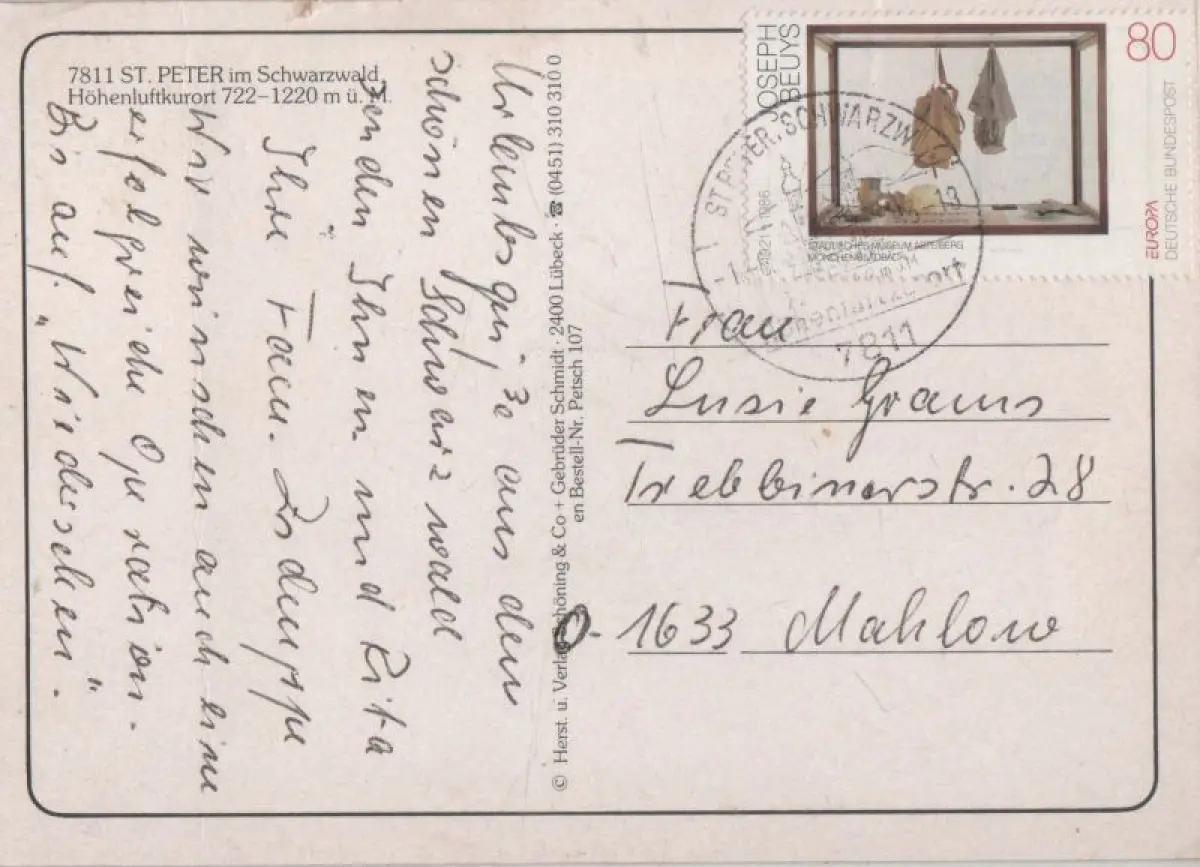 7811 ST. PETER im Schwarzwald
Höhenluftkurort 722–1220 m ü. M.
Urlaubsgrüße aus dem
schönen Schwarzwald
senden Ihnen und Rita
Ihre Fam.
Wir wünschen auch eine
erfolgreiche Operation.
Bis auf „Wiedersehen".
© Herst. u. Verlag Schöning & Co + Gebrüder Schmidt · 2400 Lübeck · ☎ (0451) 310 310 0
en Bestell-Nr. Petsch 107
JOSEPH
BEUYS
1921 1986
80
EUROPA
DEUTSCHE BUNDESPOST
STÄDTISCHES MUSEUM ABTEIBERG
MÖNCHENGLADBACH
ST. PETER, SCHWARZW
7811
Frau
Lusie Grams
Trebbinerstr. 28
O-1633 Mahlow